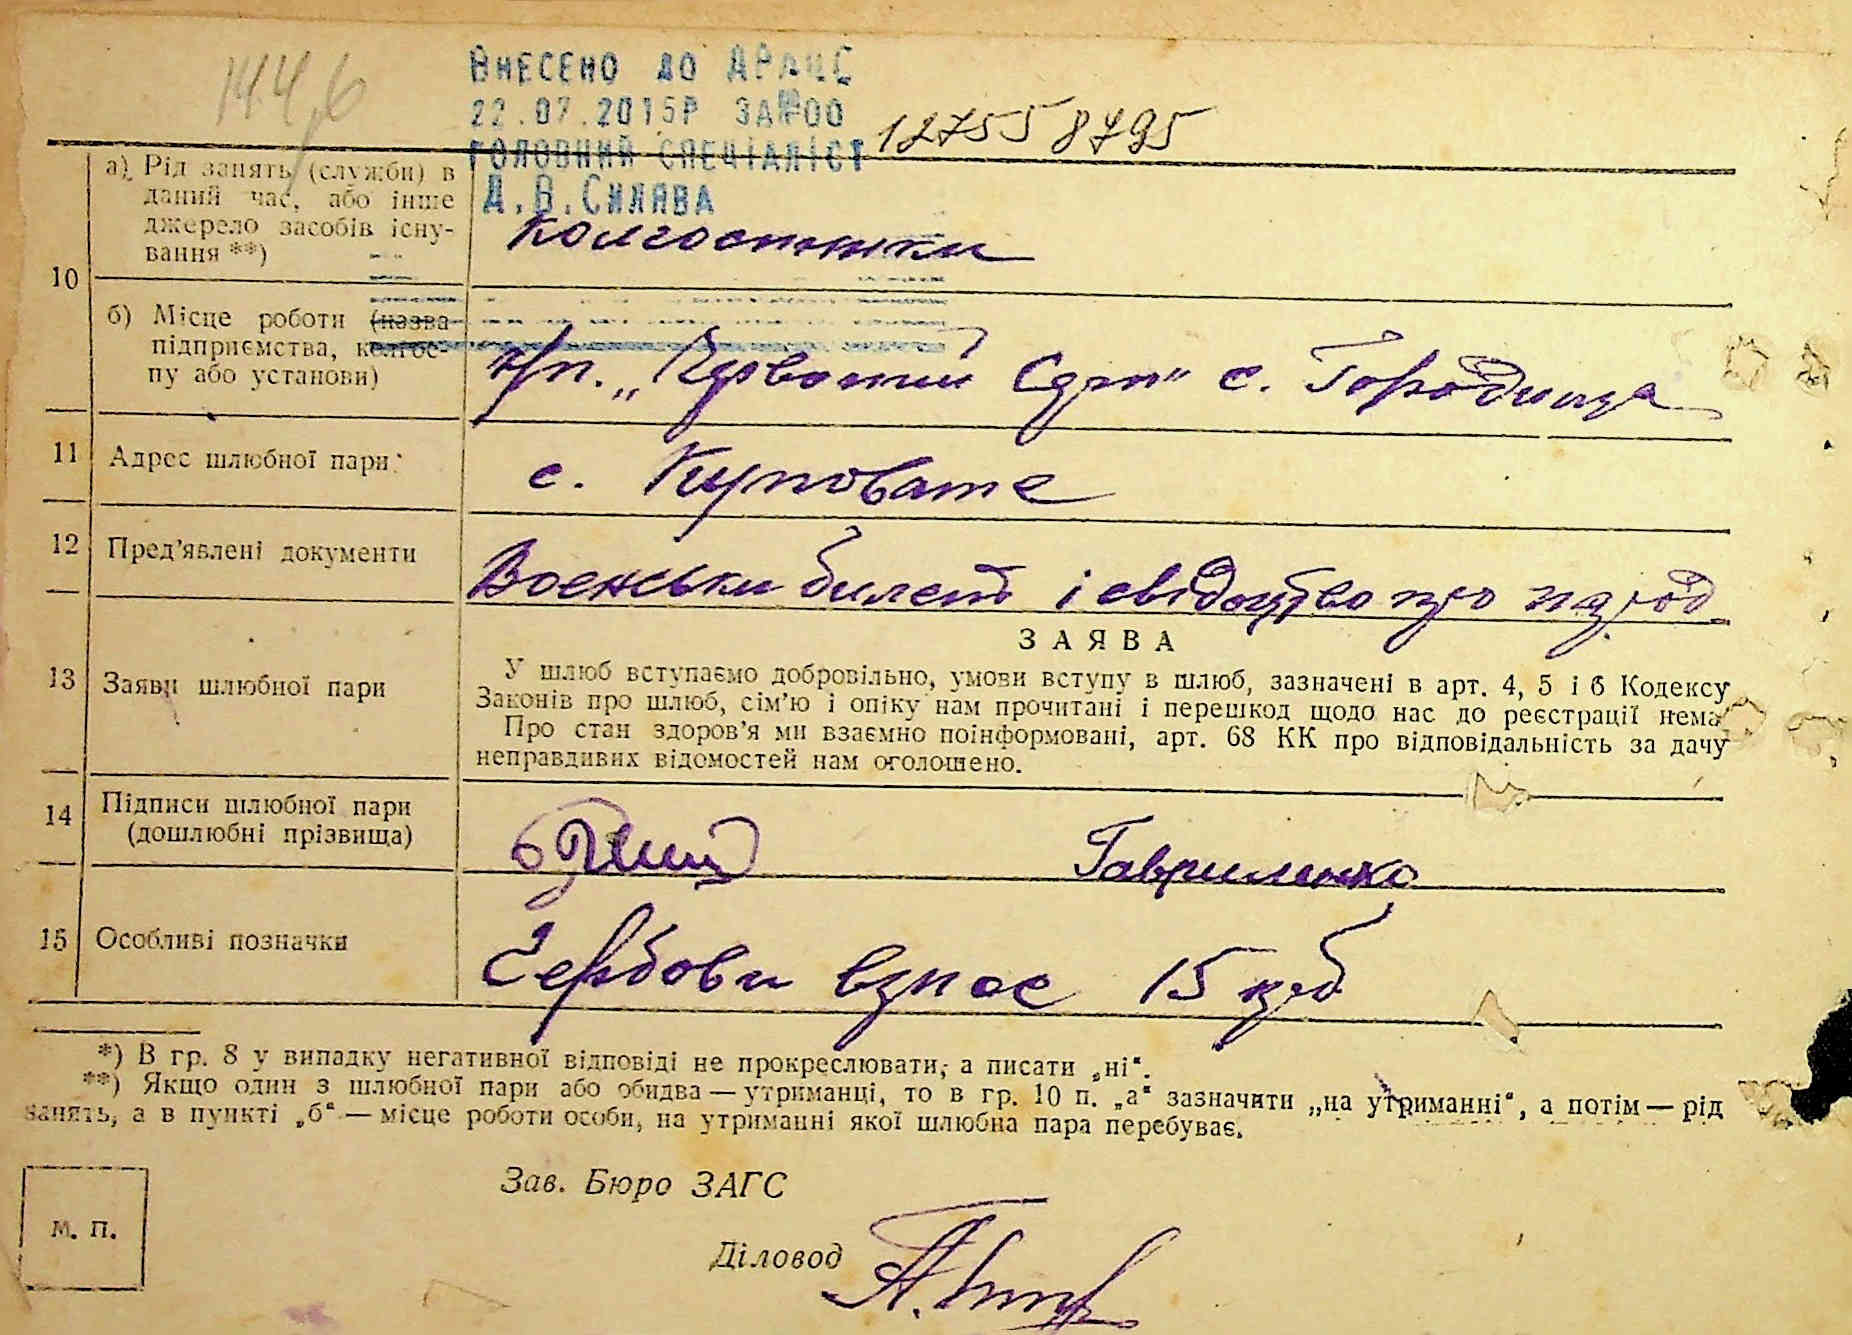 144,6
ВНЕСЕНО ДО ДРАЦС
22.07.2015Р ЗА №00 127558795
ГОЛОВНИЙ СПЕЦІАЛІСТ
Д.В.СИЛЯВА
10
а) Рід занять (служби) в
даний час, або інше
джерело засобів існу-
вання **)
Колгоспники
б) Місце роботи (назва
підприємства, колгос-
пу або установи)
к/п. „Червоний Серп" с. Городище
11 Адрес шлюбної пари
с. Куповате
12 Пред'явлені документи
Воєнськи билет і свідоцтво про народ
13 Заяви шлюбної пари
ЗАЯВА
У шлюб вступаємо добровільно, умови вступу в шлюб, зазначені в арт. 4, 5 і 6 Кодексу
Законів про шлюб, сім'ю і опіку нам прочитані і перешкод щодо нас до реєстрації нема
Про стан здоров'я ми взаємно поінформовані, арт. 68 КК про відповідальність за дачу
неправдивих відомостей нам оголошено.
14 Підписи шлюбної пари
(дошлюбні прізвища)
Гавриленко
15 Особливі позначки
Гербови взнос 15 крб
*) В гр. 8 у випадку негативної відповіді не прокреслювати, а писати „ні".
**) Якщо один з шлюбної пари або обидва — утриманці, то в гр. 10 п. „а" зазначити „на утриманні", а потім — рід
занять, а в пункті „б" — місце роботи особи, на утриманні якої шлюбна пара перебуває.
Зав. Бюро ЗАГС
М. П.
Діловод